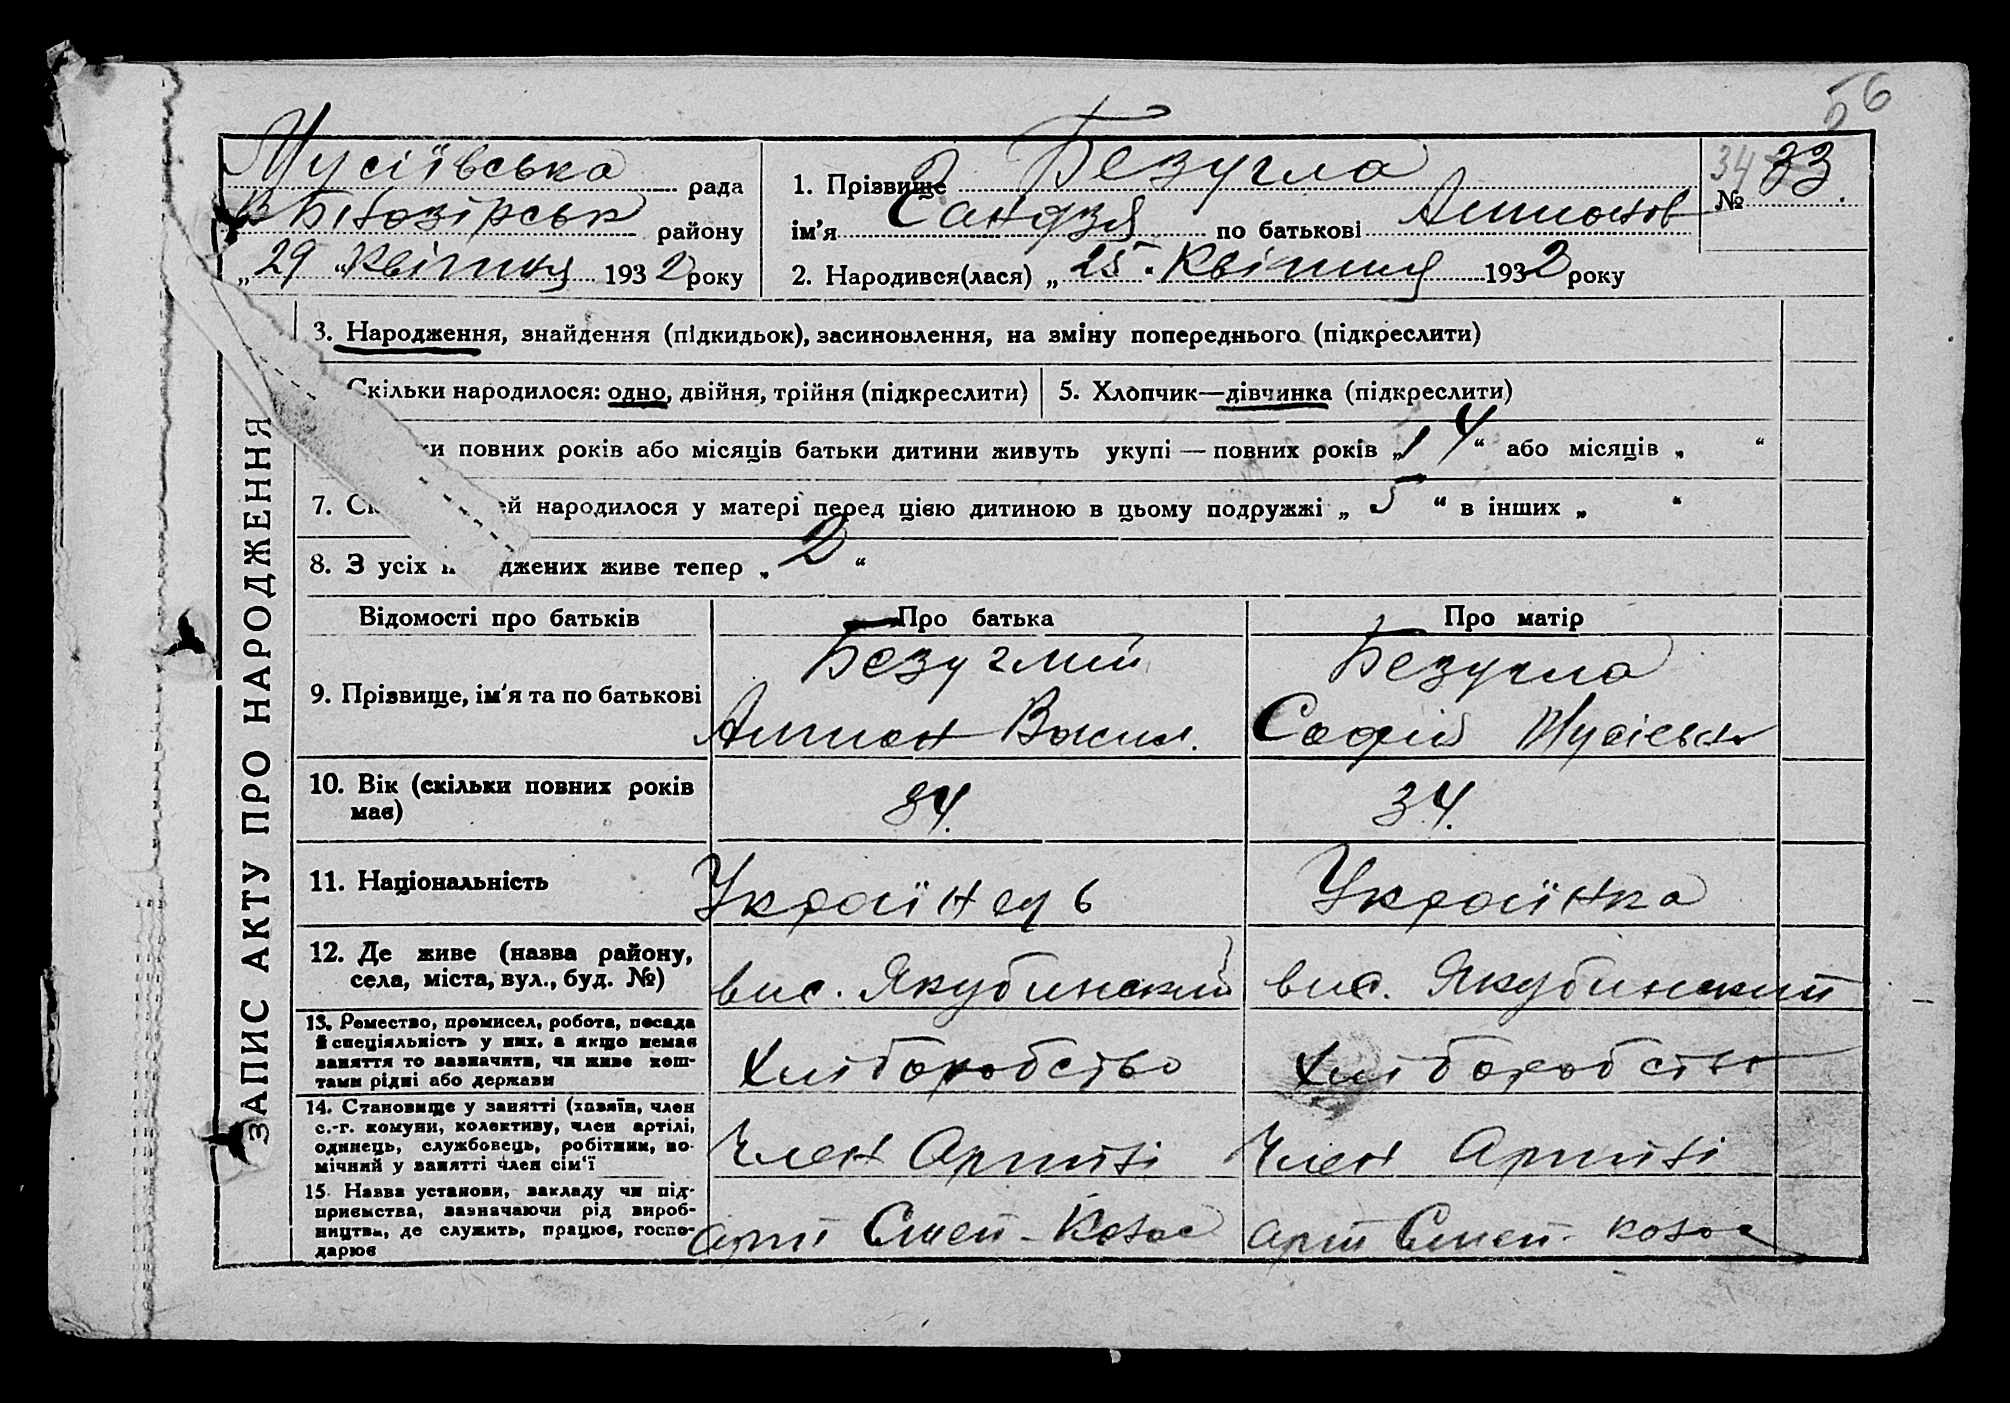 56
Мусіївська рада
В Білозірськ району
„29“ Квітня 1932 року
1. Прізвище Безугла
ім'я Сандзя по батькові Антонов
2. Народився(лася) „25“ Квітня 1932 року
34 № 33.
3. Народження, знайдення (підкидьок), засиновлення, на зміну попереднього (підкреслити)
Скільки народилося: одно, двійня, трійня (підкреслити)
5. Хлопчик—дівчинка (підкреслити)
ки повних років або місяців батьки дитини живуть укупі — повних років „14“ або місяців „ “
7. Ск ей народилося у матері перед цією дитиною в цьому подружжі „ 5 “ в інших „ “
8. З усіх н джених живе тепер „ 2 “
ЗАПИС АКТУ ПРО НАРОДЖЕННЯ
Відомості про батьків Про батька Про матір
9. Прізвище, ім'я та по батькові
Безуглий
Антон Васил.
Безугла
Софія Мусієвна
10. Вік (скільки повних років
має)
34.
34.
11. Національність
Українець
Українка
12. Де живе (назва району,
села, міста, вул., буд. №)
вис. Якубинский
вис. Якубинский
13. Ремество, промисел, робота, посада
й спеціяльність у них, а якщо немає
заняття то зазначити, чи живе кош-
тами рідні або держави
Хліборобство
Хліборобство
14. Становище у занятті (хазяїн, член
с.-г. комуни, колективу, член артілі,
одинець, службовець, робітник, по-
мічний у занятті член сім'ї
Член Артілі
Член Артілі
15. Назва установи, закладу чи під-
приємства, зазначаючи рід вироб-
ництва, де служить, працює, госпо-
дарює